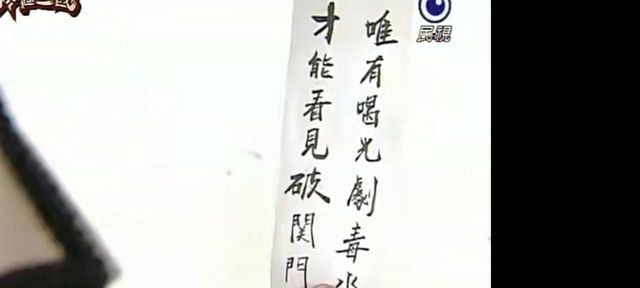 唯有喝光劇毒水
才能看見破関門
民視